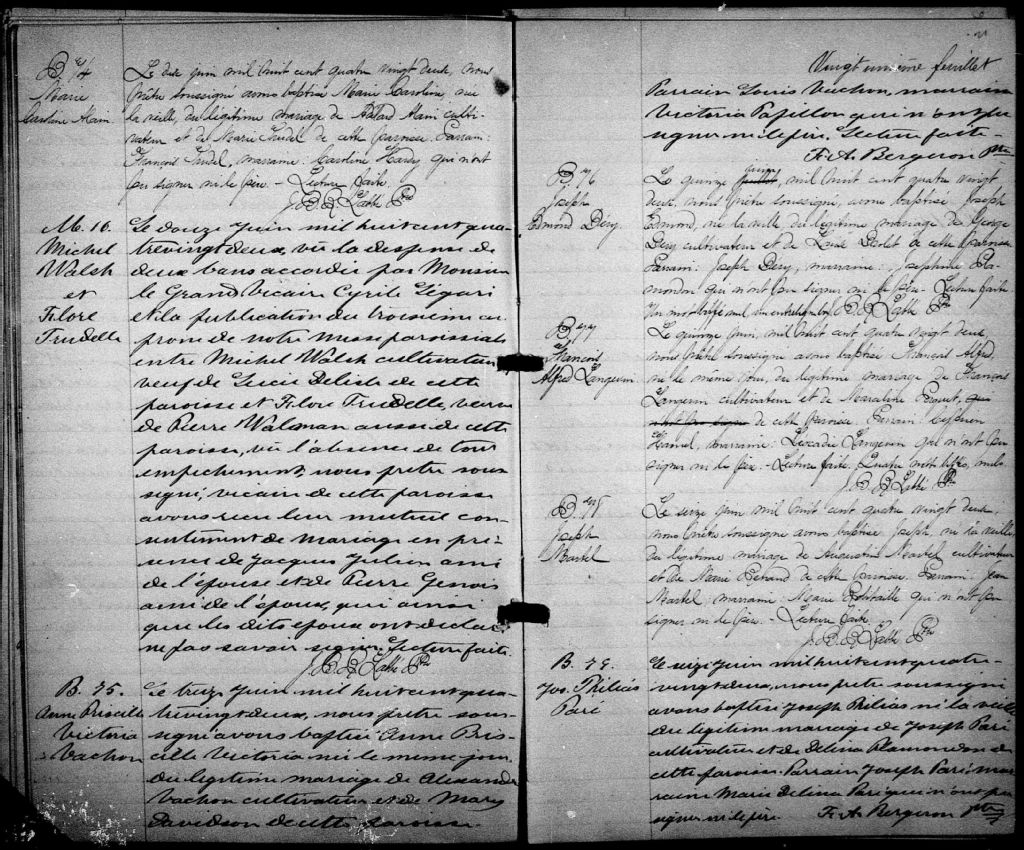 B. 74
Marie
Caroline Alain
Le dix juin mil huit cent quatre vingt deux, nous
prêtre soussigné avons baptisé Marie Caroline, née
la veille, du légitime mariage de Alain culti-
vateur et de Marie Trudel de cette paroisse. Parrain:
François Trudel, marraine: Caroline Hardy qui n'ont
pu signer ni le père. - Lecture faite.
J. B. Ptre
M. 16.
Michel
Walsh
et
Flore
Trudelle
Le douze Juin mil huit cent qua-
trevingt deux, vû la despense de
deux bans accordée par Monsieur
le Grand Vicair Cyrile Légaré
et la publication du troisième au
prone de notre Messe paroissiale
entre Michel Walsh cultivateur
veuf de Lucie Delisle de cette
paroisse et Flore Trudelle, veuve
de Pierre Walsman aussi de cette
paroisse, vû l'absence de tout
empechement, nous pretre sous
signé, vicair de cette paroisse
avons reçu leur mutuel con-
sentement de Mariage en pré-
sence de Jacques Julien ami
de l'épouse et de Pierre Genois
ami de l'époux, qui ainsi
que les dits époux ont déclaré
ne pas savoir signer, Lecture faite.
J. B. Ptre
B. 75.
Anne Priscille
Victoria
Vachon
Le treize Juin mil huit cent qua-
trevingt deux, nous pretre sous-
signé avons baptisé Anne Pris-
cille Victoria née le même jour
du légitime mariage de Alexandre
Vachon cultivateur et de Mary
Davidson de cette paroisse.
Vingt unième feuillet
Parrain Louis Vachon, marraine
Victoria Papillon qui n'ont pu
signer ni le père. Lecture faite.
F. A. Bergeron Ptre
B. 76
Joseph
Edmond Déry
Le quinze juillet juin, mil huit cent quatre vingt
deux, nous prêtre soussigné, avons baptisé Joseph
Edmond, né la veille du légitime mariage de George
Déry cultivateur et de de cette paroisse
Parrain: Joseph Déry, marraine: Josephine Pla-
mondon qui n'ont pu signer ni le père. Lecture faite.
Un mot biffé nul, un entreligne bon. J. B. Ptre
B. 77
François
Alfred Langevin
Le quinze juin, mil huit cent quatre vingt deux,
nous prêtre soussigné avons baptisé François Alfred,
né le même jour, du légitime mariage de François
Langevin cultivateur et de Marceline Drouet, qui
de cette paroisse. Parrain:
Hamel, marraine: Léocadie Langevin qui n'ont pu
signer ni le père. - Lecture faite. Quatre mots biffés, nuls.
J. B. Ptre
B. 78
Joseph
Martel
Le seize juin mil huit cent quatre vingt deux,
nous prêtre soussigné avons baptisé Joseph, né la veille,
du légitime mariage de Augustin Martel cultivateur
et de Marie de cette paroisse. Parrain: Jean
Martel, marraine: Marie Robitaille qui n'ont pu
signer ni le père. - Lecture faite.
J. B. Ptre
B. 79.
Jos. Philéas
Paré
Le seize Juin mil huit cent quatre-
vingt deux, nous pretre soussigné
avons baptisé Joseph Philéas né la veille
du légitime mariage de Joseph Paré
cultivateur et de Delina Plamondon de
cette paroisse. Parrain Joseph Paré mar-
raine Marie Delina Paré qui n'ont pu
signer ni le père. F. A. Bergeron Ptre